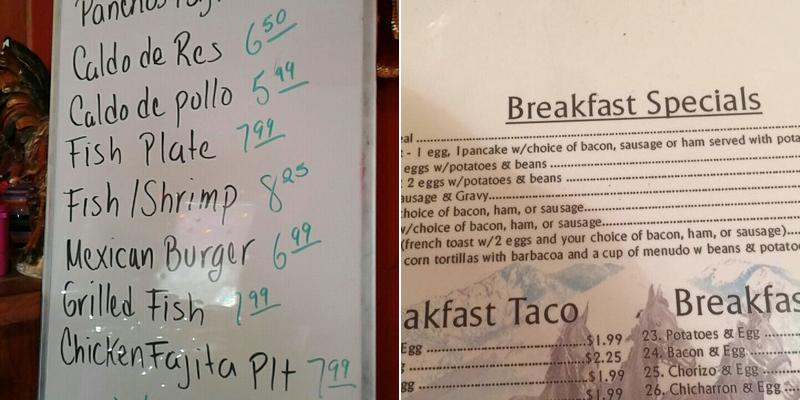 Caldo de Res 6.50
Caldo de pollo 5.99
Fish Plate 7.99
Fish/Shrimp 8.25
Mexican Burger 6.99
Grilled Fish 7.99
Chicken Fajita Plt 7.99
Breakfast Specials
- 1 egg, 1 pancake w/choice of bacon, sausage or ham served with
eggs w/potatoes & beans
2 eggs w/potatoes & beans
& Gravy
choice of bacon, ham, or sausage
w/choice of bacon, ham, or sausage
(french toast w/2 eggs and your choice of bacon, ham, or sausage)
corn tortillas with barbacoa and a cup of menudo w beans &
Taco
Egg $1.99
$2.25
$1.99
$1.99
23. Potatoes & Egg
24. Bacon & Egg
25. Chorizo & Egg
26. Chicharron & Egg